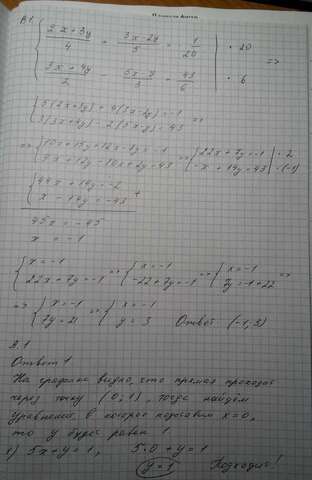 В1.
{ (2x+3y)/4 + (3x-2y)/5 = -1/20 | · 20 =>
{ (3x+4y)/2 - (5x-y)/3 = 43/6 | · 6
{ 5(2x+3y) + 4(3x-2y) = -1 =>
{ 3(3x+4y) - 2(5x-y) = 43
=> { 10x+15y+12x-8y = -1 => { 22x+7y = -1 | · 2
{ 9x+12y-10x+2y = 43 { -x+14y = 43 | · (-1)
{ 44x+14y = -2 +
{ x-14y = -43
45x = -45
x = -1
{ x = -1 => { x = -1 => { x = -1 =>
{ 22x+7y = -1 { -22+7y = -1 { 7y = -1+22
=> { x = -1 => { x = -1
{ 7y = 21 { y = 3 Ответ (-1; 3)
Ответ 1
На графике видно, что прямая проходит
через точку (0; 1), тогда найдём
уравнение, в которое подставим x=0,
то y будет равен 1
5x+y=1, 5·0+y=1
y=1 Подходит!